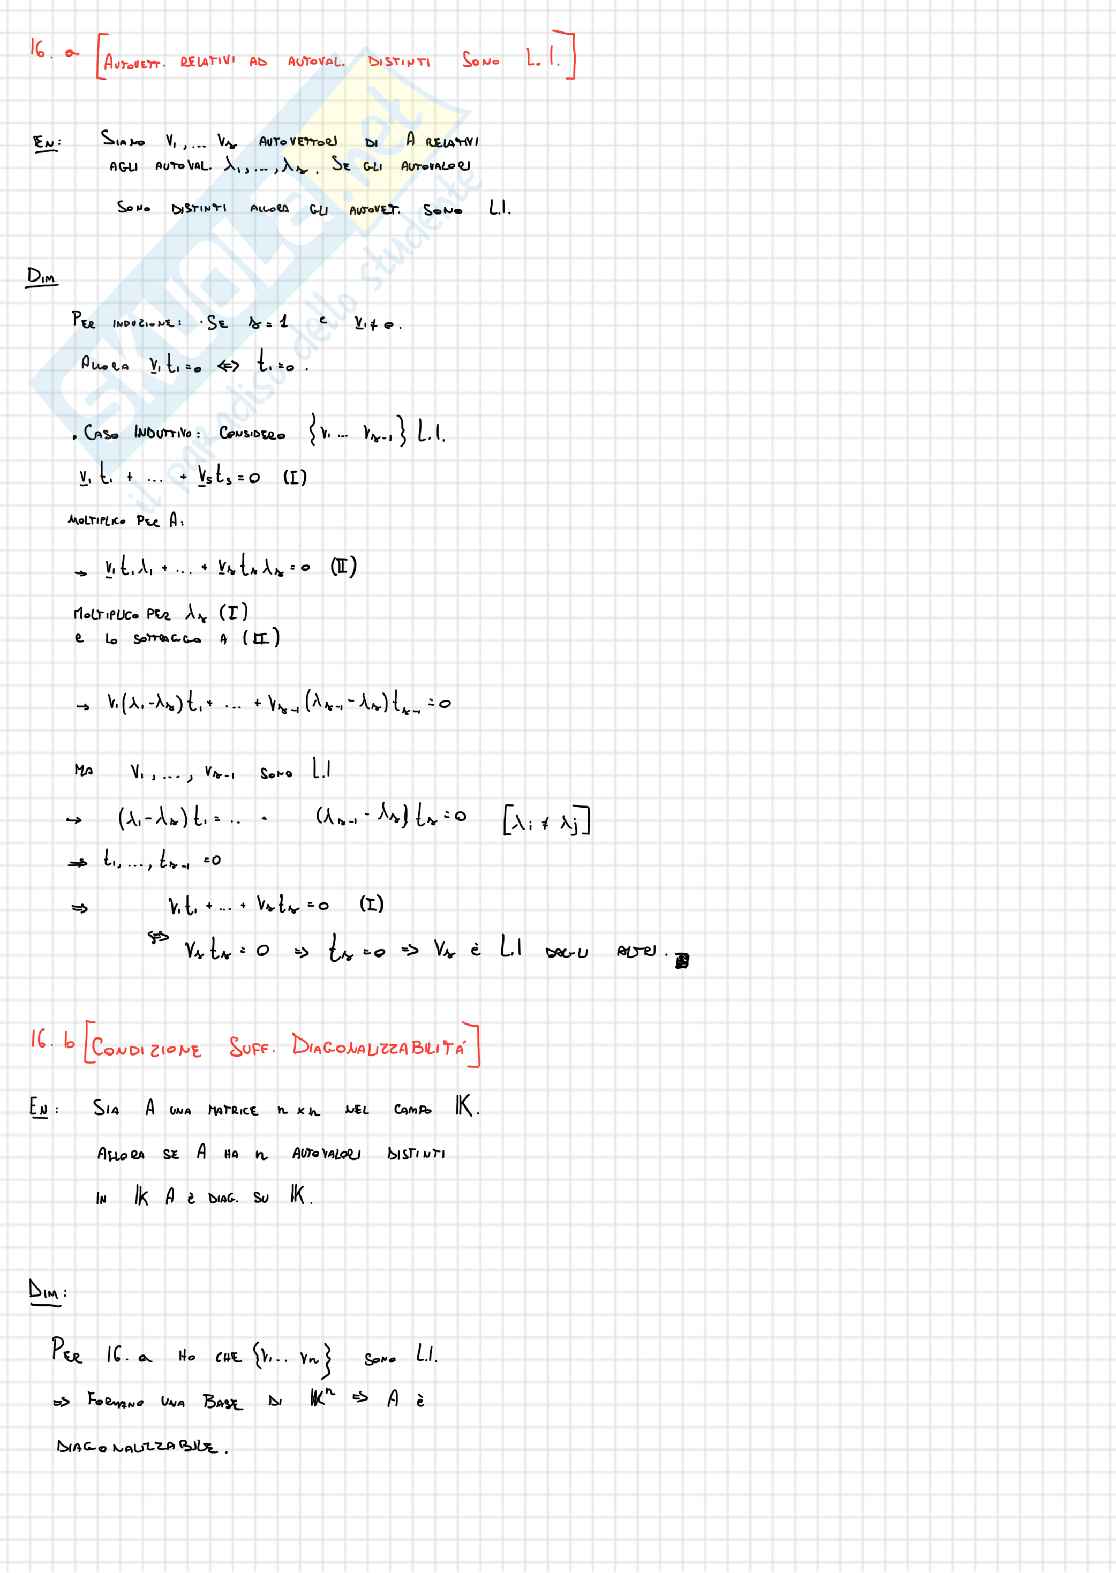 16. a [AUTOVETT. RELATIVI AD AUTOVAL. DISTINTI SONO L.I.]
EN: SIANO V₁,... Vₛ AUTOVETTORI DI A RELATIVI
AGLI AUTOVAL. λ₁,...,λₛ. SE GLI AUTOVALORI
SONO DISTINTI ALLORA GLI AUTOVET. SONO L.I.
DIM
PER INDUZIONE: · SE s=1 e v₁≠0.
ALLORA v₁t₁=0 <=> t₁=0.
· CASO INDUTTIVO: CONSIDERO {v₁ ... vₛ₋₁} L.I.
v₁t₁ + ... + vₛtₛ=0 (I)
MOLTIPLICO PER A:
→ v₁t₁λ₁ + ... + vₛtₛλₛ=0 (II)
MOLTIPLICO PER λₛ (I)
e LO SOTTRAGGO A (II)
→ v₁(λ₁-λₛ)t₁+ ... + vₛ₋₁(λₛ₋₁-λₛ)tₛ₋₁=0
MA v₁,...,vₛ₋₁ SONO L.I
→ (λ₁-λₛ)t₁=.. - (λₛ₋₁-λₛ)tₛ=0 [λi≠λj]
⇒ t₁,...,tₛ₋₁=0
⇒ v₁t₁+...+vₛtₛ=0 (I)
<=> vₛtₛ=0 ⇒ tₛ=0 ⇒ vₛ è L.I DAGLI ALTRI.
16. b [CONDIZIONE SUFF. DIAGONALIZZABILITÁ]
EN: SIA A UNA MATRICE n×n NEL CAMPO 𝕂.
ALLORA SE A HA n AUTOVALORI DISTINTI
IN 𝕂 A è DIAG. SU 𝕂.
DIM:
PER 16. a HO CHE {v₁... vn} SONO L.I.
⇒ FORMANO UNA BASE DI 𝕂ⁿ ⇒ A è
DIAGONALIZZABILE.
SKUOLA.net
il paradiso dello studente